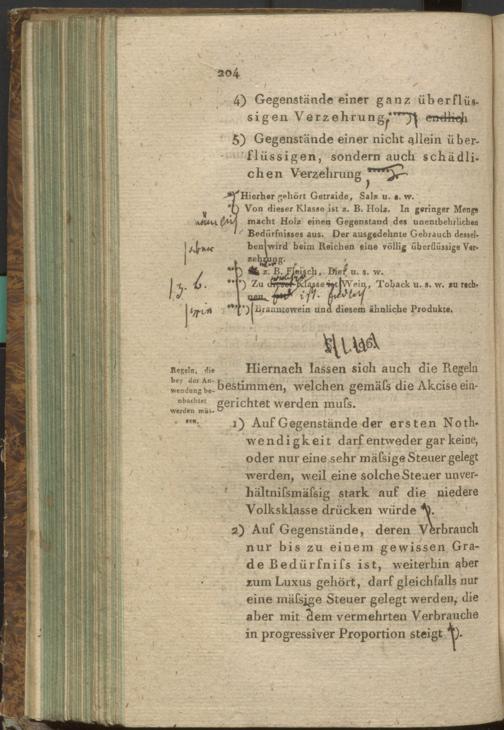 204
4) Gegenstände einer ganz überflüs-
sigen Verzehrung, endlich
5) Gegenstände einer nicht allein über-
flüssigen, sondern auch schädli-
chen Verzehrung
*) Hierher gehört Getraide, Salz u. s. w.
Von dieser Klasse ist z. B. Holz. In geringer Menge
nämlich
macht Holz einen Gegenstand des unentbehrlichen
Bedürfnisses aus. Der ausgedehnte Gebrauch dessel-
aber
ben wird beim Reichen eine völlig überflüssige Ver-
zehrung.
z. B. Fleisch, Bier u. s. w.
z. B.
Zu dieser Klasse ist Wein, Toback u. s. w. zu rech-
nen.
Branntewein und diesem ähnliche Produkte.
Regeln, die
bey der An-
wendung be-
obachtet
werden müs-
sen.
Hiernach lassen sich auch die Regeln
bestimmen, welchen gemäſs die Akcise ein-
gerichtet werden muſs.
1) Auf Gegenstände der ersten Noth-
wendigkeit darf entweder gar keine,
oder nur eine sehr mäſsige Steuer gelegt
werden, weil eine solche Steuer unver-
hältniſsmäſsig stark auf die niedere
Volksklasse drücken würde *).
2) Auf Gegenstände, deren Verbrauch
nur bis zu einem gewissen Gra-
de Bedürfniſs ist, weiterhin aber
zum Luxus gehört, darf gleichfalls nur
eine mäſsige Steuer gelegt werden, die
aber mit dem vermehrten Verbrauche
in progressiver Proportion steigt *).